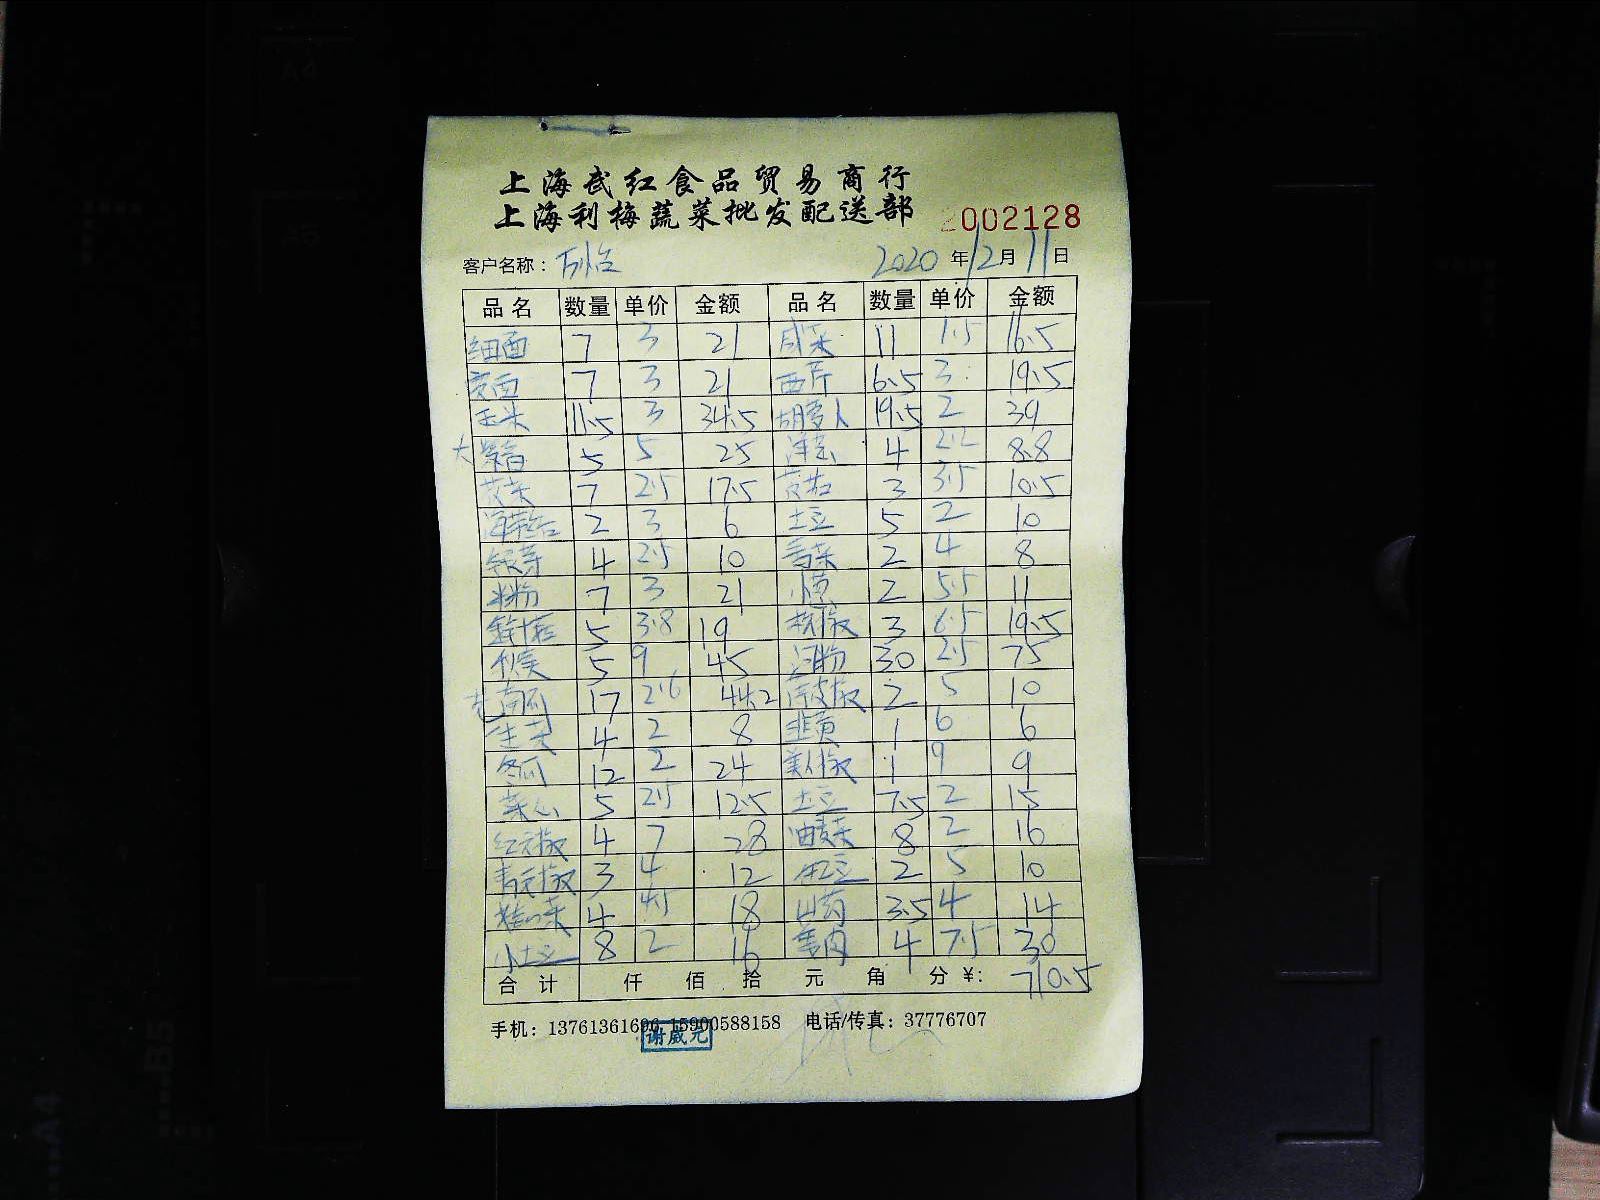 上海武红食品贸易商行
上海利梅蔬菜批发配送部
2002128
客户名称：万怡 2020年12月11日
品名 数量 单价 金额 品名 数量 单价 金额
细面 7 3 21 咸菜 11 1.5 16.5
宽面 7 3 21 西芹 6.5 3 19.5
玉米 11.5 3 34.5 胡萝卜 19.5 2 39
大 5 5 25 洋葱 4 2.2 8.8
7 2.5 17.5 3 3.5 10.5
海带结 2 3 6 土豆 5 2 10
银芽 4 2.5 10 青菜 2 4 8
米粉 7 3 21 小葱 2 5.5 11
5 3.8 19 杭椒 3 6.5 19.5
5 9 45 河粉 30 2.5 75
老南瓜 17 2.6 44.2 薄皮椒 2 5 10
生菜 4 2 8 韭黄 1 6 6
冬瓜 12 2 24 美人椒 1 9 9
菜心 5 2.5 12.5 土豆 7.5 2 15
红元椒 4 7 28 油麦菜 8 2 16
青元椒 3 4 12 2 5 10
4 4.5 18 山药 3.5 4 14
小土豆 8 2 16 姜肉 4 7.5 30
合计 仟 佰 拾 元 角 分 ¥: 710.5
手机：13761361696 15900588158 电话/传真：37776707
谢威元